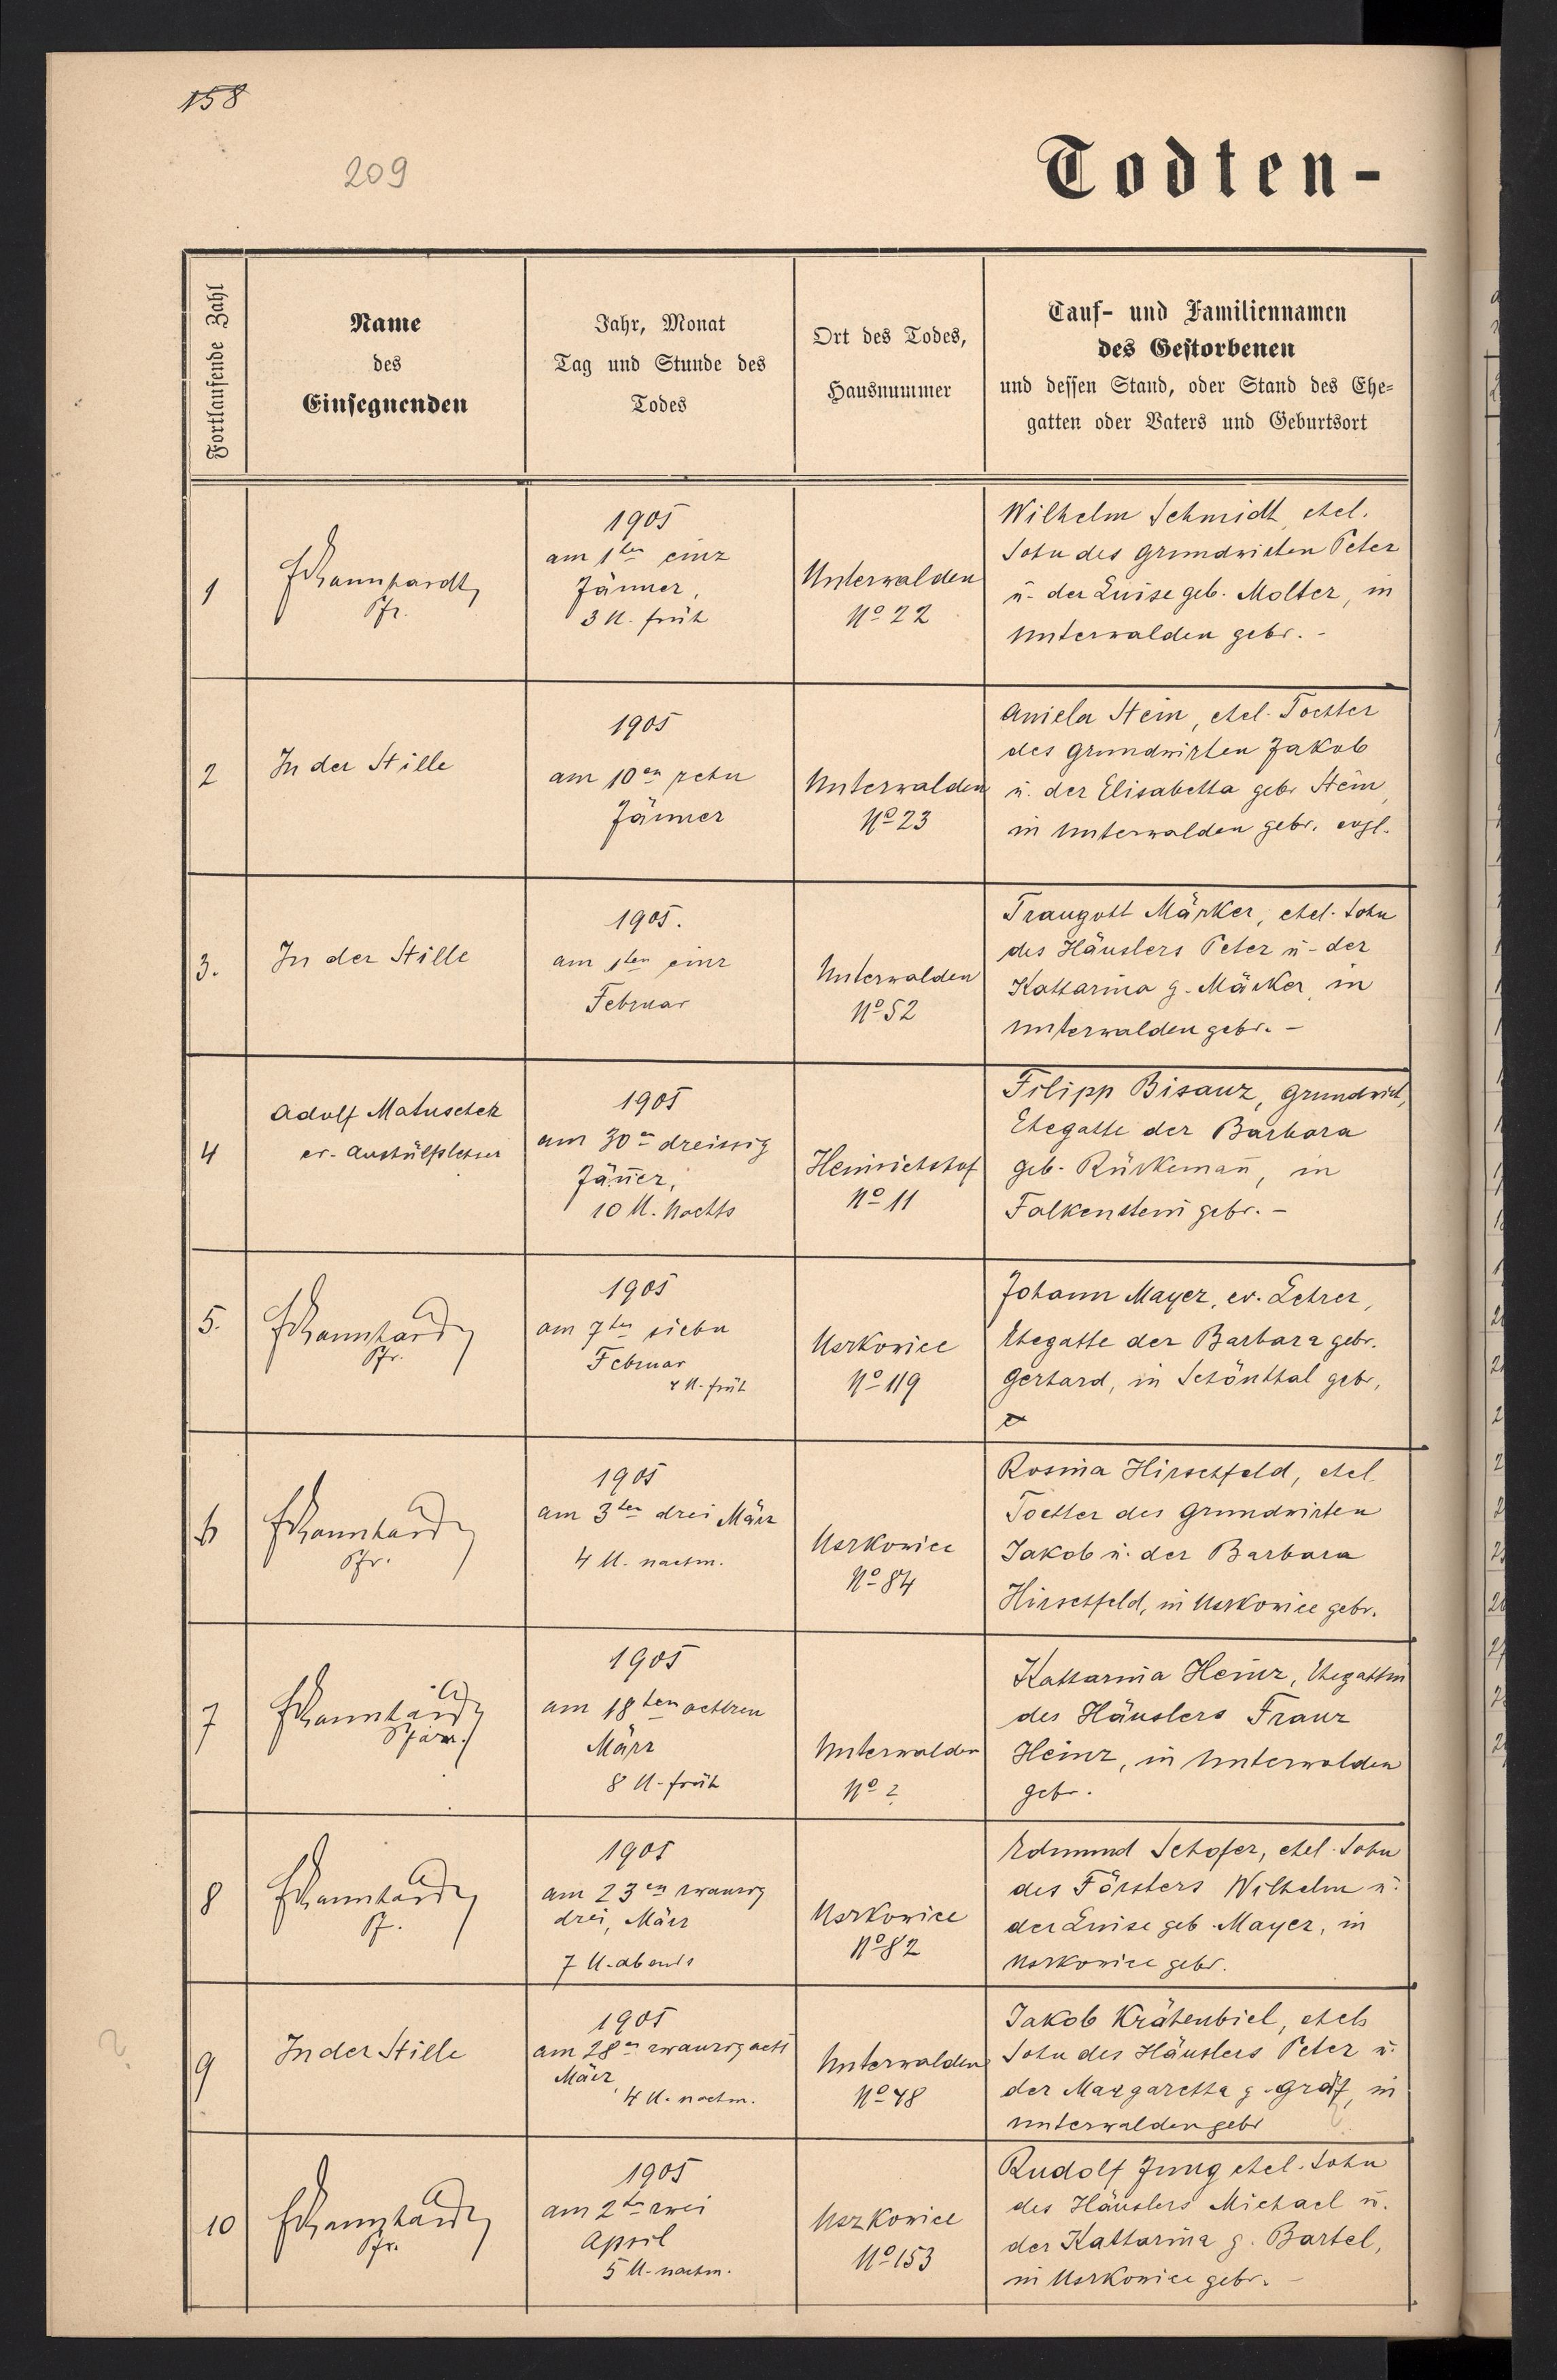 158
209
Todten-
Fortlaufende Zahl
Name
des
Einsegnenden
Jahr, Monat
Tag und Stunde des
Todes
Ort des Todes,
Hausnummer
Tauf- und Familiennamen
des Gestorbenen
und dessen Stand, oder Stand des Ehe-
gatten oder Vaters und Geburtsort
1
Pfr.
1905
am 1ten einz
Jänner,
3 U. früh
Unterwalden
No 22
Wilhelm Schmidt, ehel.
Sohn des Grundwirten Peter
u. der Luise geb. Molter, in
Unterwalden gebr. -
2
In der Stille
1905
am 10en zehn
Jänner
Unterwalden
No 23
Aniela Stein, ehel. Tochter
des Grundwirten Jakob
u. der Elisabetha gebr Stein,
in Unterwalden gebr. evgl.
3.
In der Stille
1905.
am 1ten einz
Februar
Unterwalden
No 52
Traugott Märker, ehel. Sohn
des Häuslers Peter u. der
Katharina g. Märker, in
Unterwalden gebr. -
4
Adolf Matuschek
ev. Aushülfslehrer
1905
am 30en dreissig
Jäñer,
10 U. Nachts
Heinrichshof
No 11
Filipp Bisanz, Grundwirt,
Ehegatte der Barbara
geb. Rückemañ, in
Falkenstein gebr. -
5.
Pfr.
1905
am 7ten siebn
Februar
4 U. früh
Uszkowice
No 119
Johann Mayer, ev. Lehrer,
Ehegatte der Barbara gebr.
Gerhard, in Schönthal gebr,
6
Pfr.
1905
am 3ten drei März
4 U. nachm.
Uszkowice
No 84
Rosina Hirschfeld, ehel.
Tochter des Grundwirten
Jakob u. der Barbara
Hirschfeld, in Uszkowice gebr.
7
1905
am 18ten achtzen
März
8 U. früh
Unterwalden
No 2
Katharina Heinz, Ehegattin
des Häuslers Franz
Heinz, in Unterwalden
gebr.
8
Pf.
1905
am 23en zwanzig
drei, März
7 U. abends
Uszkowice
No 82
Edmund Schofer, ehel. Sohn
des Försters Wilhelm u.
der Luise geb. Mayer, in
Uszkowice gebr.
9
In der Stille
1905
am 28en zwanzig acht
März
4 U. nachm.
Unterwalden
No 48
Jakob Krähenbiel, ehel.
Sohn des Häuslers Peter u.
der Margaretha g. Gräf, in
Unterwalden gebr
10
Pfr.
1905
am 2ten zwei
April
5 U. nachm.
Uszkowice
No 153
Rudolf Jung ehel. Sohn
des Häuslers Michael u.
der Katharina g. Bartel,
in Uszkowice gebr. -